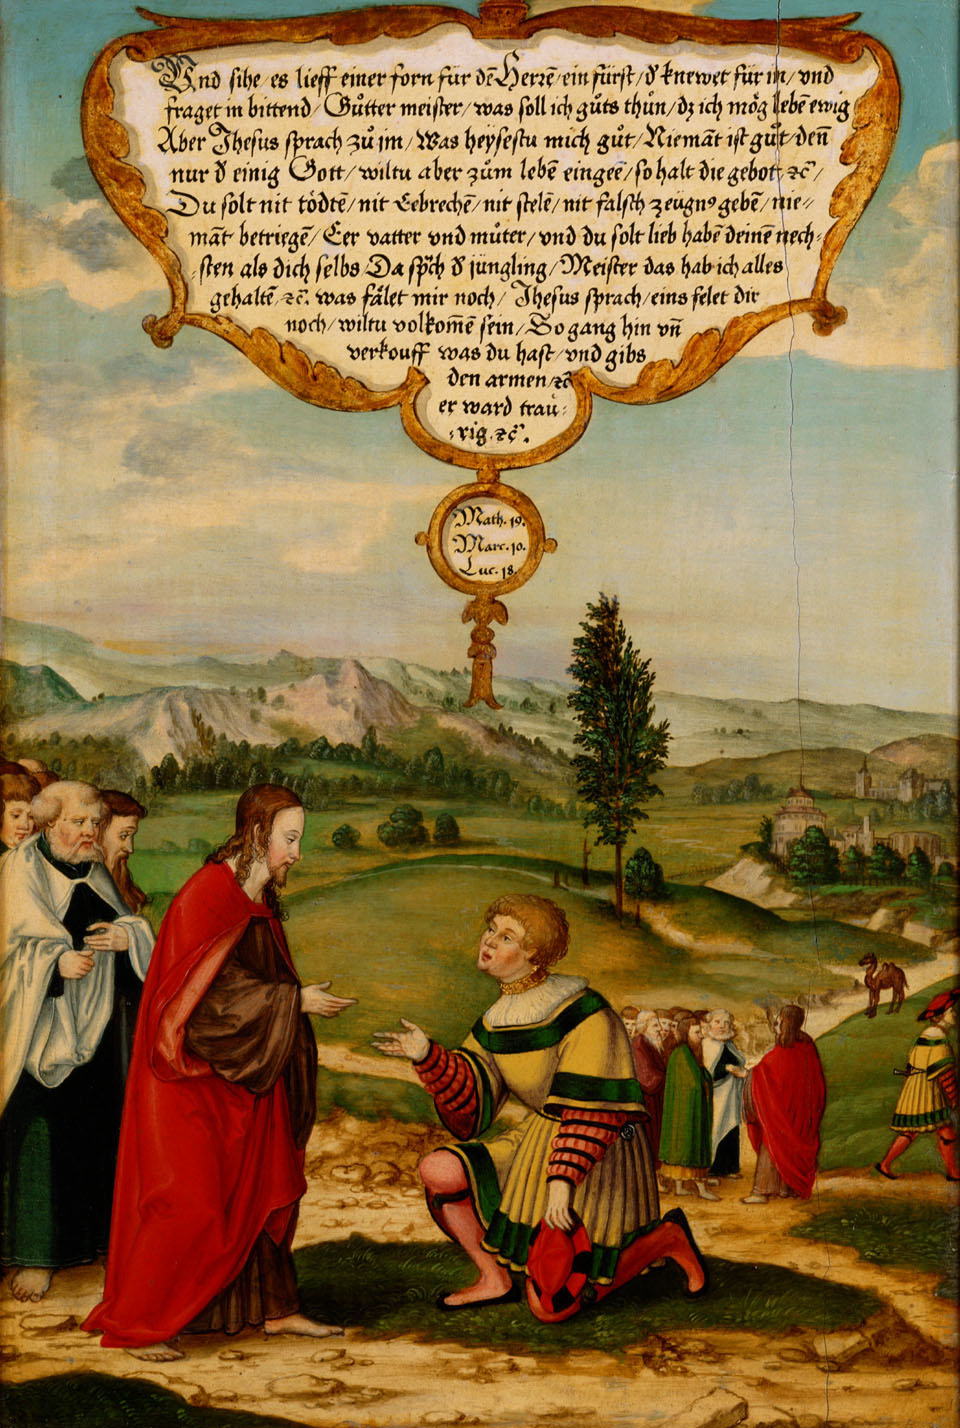 Vnd sihe/es lieff einer forn für dē Herrē/ein fürst/d̾ knewet für in/vnd
fraget in bittend/Gůtter meister/was soll ich gůts thůn/dz ich mög lebē ewig
Aber Jhesus sprach zů im/Was heysestu mich gůt/Niemāt ist gůt/den̄
nur d̾ einig Gott/wiltu aber zům lebē eingeē/so halt die gebot/ꝛc̄/
Du solt nit tödtē/nit Eebrechē/nit stelē/nit falsch zeügnꝰ gebē/nie⸗
māt betriegē/Eer vatter vnd můter/vnd du solt lieb habē deinē nech⸗
sten als dich selbs/Da sp̄ch d̾ jüngling/Meister das hab ich alles
gehaltē/ꝛc̄. was fålet mir noch/Jhesus sprach/eins felet dir
noch/wiltu volkom̄ē sein/So gang hin vn̄
verkouff was du hast/vnd gibs
den armen/ꝛc̄
er ward trau⸗
rig.ꝛc̄.
Math. 19.
Marc. 10.
Luc. 18.